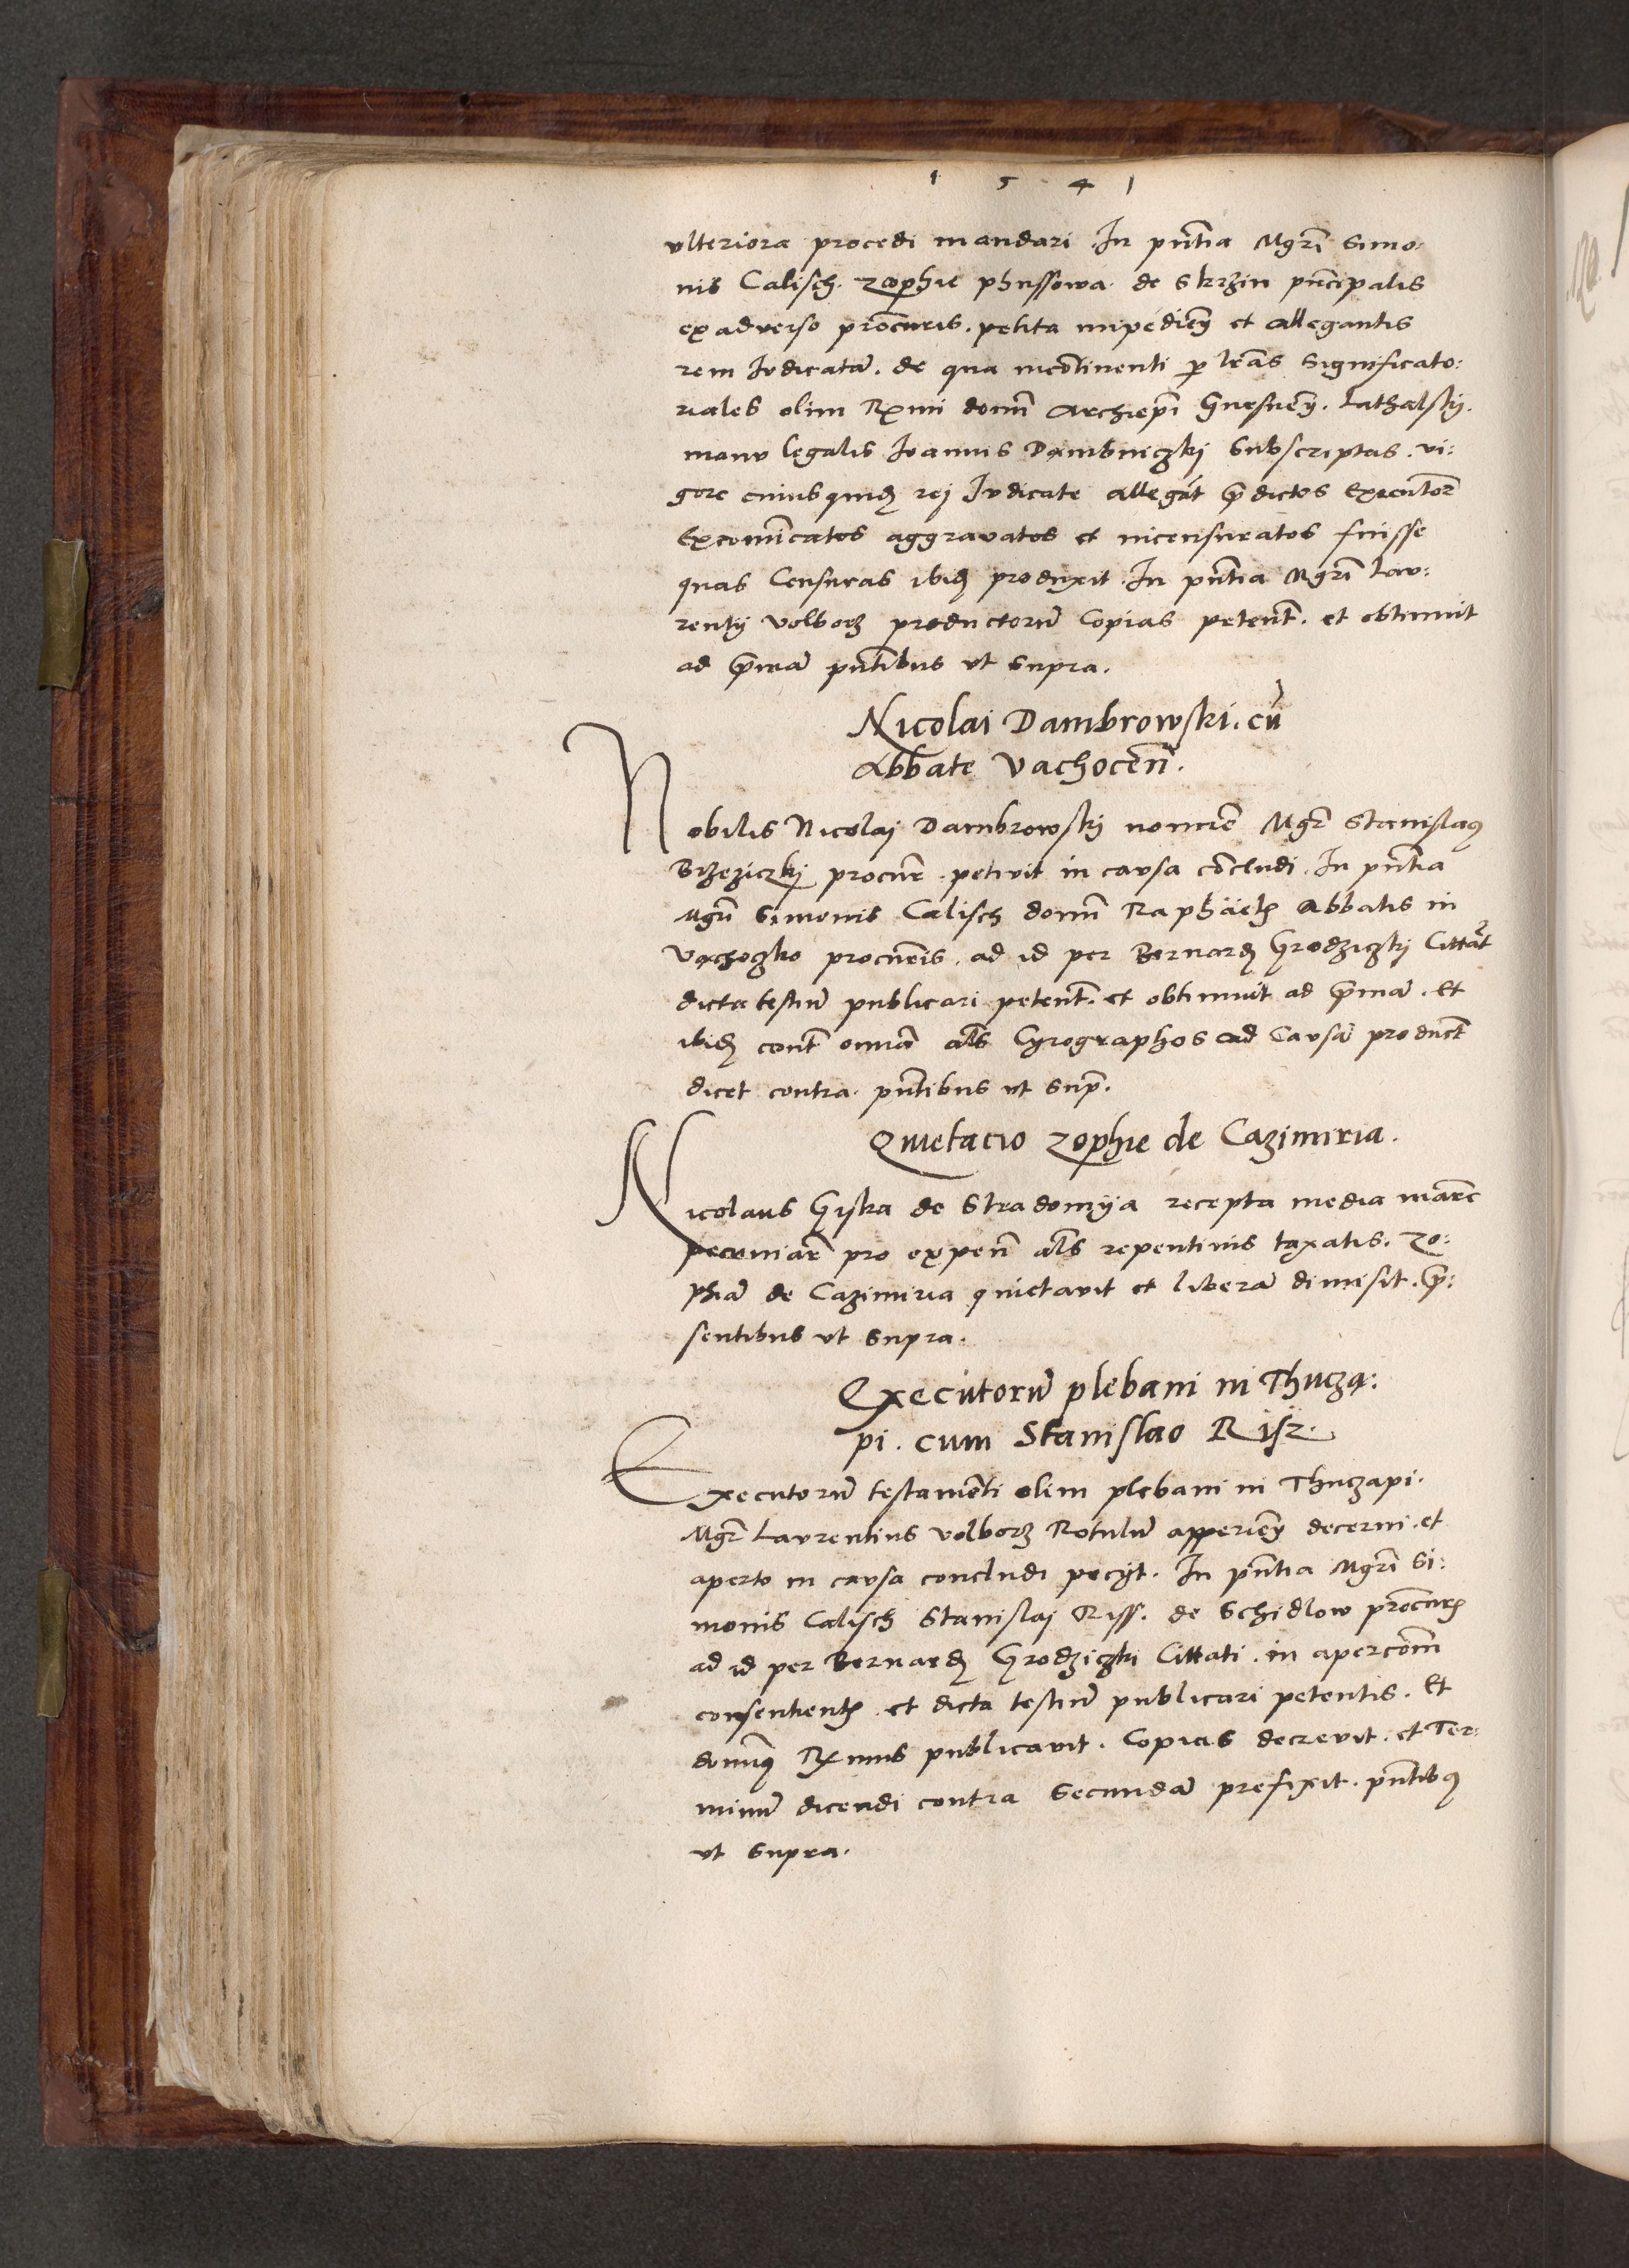 1 5 4 1
ulteriora procedi mandari. In pñtia Mgrĩ Simo:
nis Calisch. Zophie phussowa. de Skrzin prĩcipalis
ex adverso procuris. petita impediẽn et allegantis
rem Iudicatã. de qua incõtinenti p lrãs significato:
riales olim Rx̃mi domĩ Archiepĩ Gnesneñ. Lathalskÿ.
manu legalis Ioannis Dambniczkj subscriptas. vi:
gore cuius quidẽ rej Iudicate allegãt p̃dictos Executor̃
Excomĩcatos aggravatos et incensuratos fuisse
quas Censuras ibidẽ produxit. In pñtia Mgrĩ Lau:
rentÿ Volborz productorũ Copias petent̃. et obtinuit
ad p̃mã pñtibus ut supra.
Nicolai Dambrowski. cũ
Abbate Vachoceñ.
Nobilis Nicolaj Dambrowskj nomie Mgr̃ Stanislaus
Brzeziczkj procur̃. petivit in causa cõcludi. In pñtia
Mgrĩ Simonis Calisch domĩ Raphaelis Abbatis in
Vachoczko procuris. ad id per Bernardũ Grodziczkj Cittat̃
dicta testiũ publicari petent̃. et obtinuit ad p̃mã. Et
ibidẽ cont̃ omiã als Cyrographos ad Causã product̃
dicet contra. pñtibus ut sup̃.
Quietacio Zophie de Cazimiria.
Nicolaus Giska de Stradomÿa recepta media marc̃
pecuniar̃ pro expeñ als repentinis taxatis. Zo:
phiã de Cazimiria quietavit et liberã dimisit. p̃:
sentibus ut supra.
Executorũ plebani in Thucza:
pi. cum Stanislao Risz.
Executorũ testamẽti olim plebani in Thuczapi.
Mgr̃ Laurentius Volborz Rotulũ apperieñ decerni. et
aperto in causa concludi pecÿt. In pñtia Mgrĩ Si:
monis Calisch Stanislaj Riss. de Schidlow procuris
ad id per Bernardũ Grodziczki Cittati. in apercõm
consentientis. et dicta testiũ publicari petentis. Et
domĩus Rx̃mus publicavit. Copias decrevit. et Ter:
minũ dicendi contra secundã prefixit. pñtibus
ut supra.